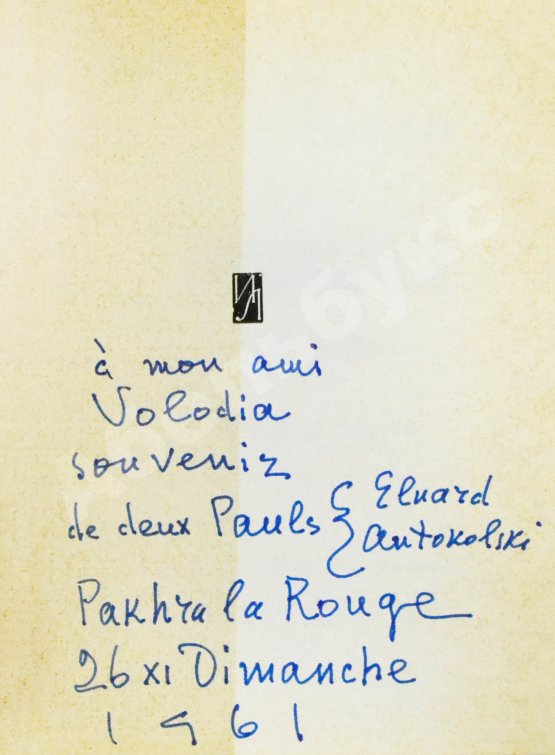 à mon ami
Volodia
souvenir
de deux Pauls { Eluard
Antokolski
Pakhra la Rouge
26 XI Dimanche
1961